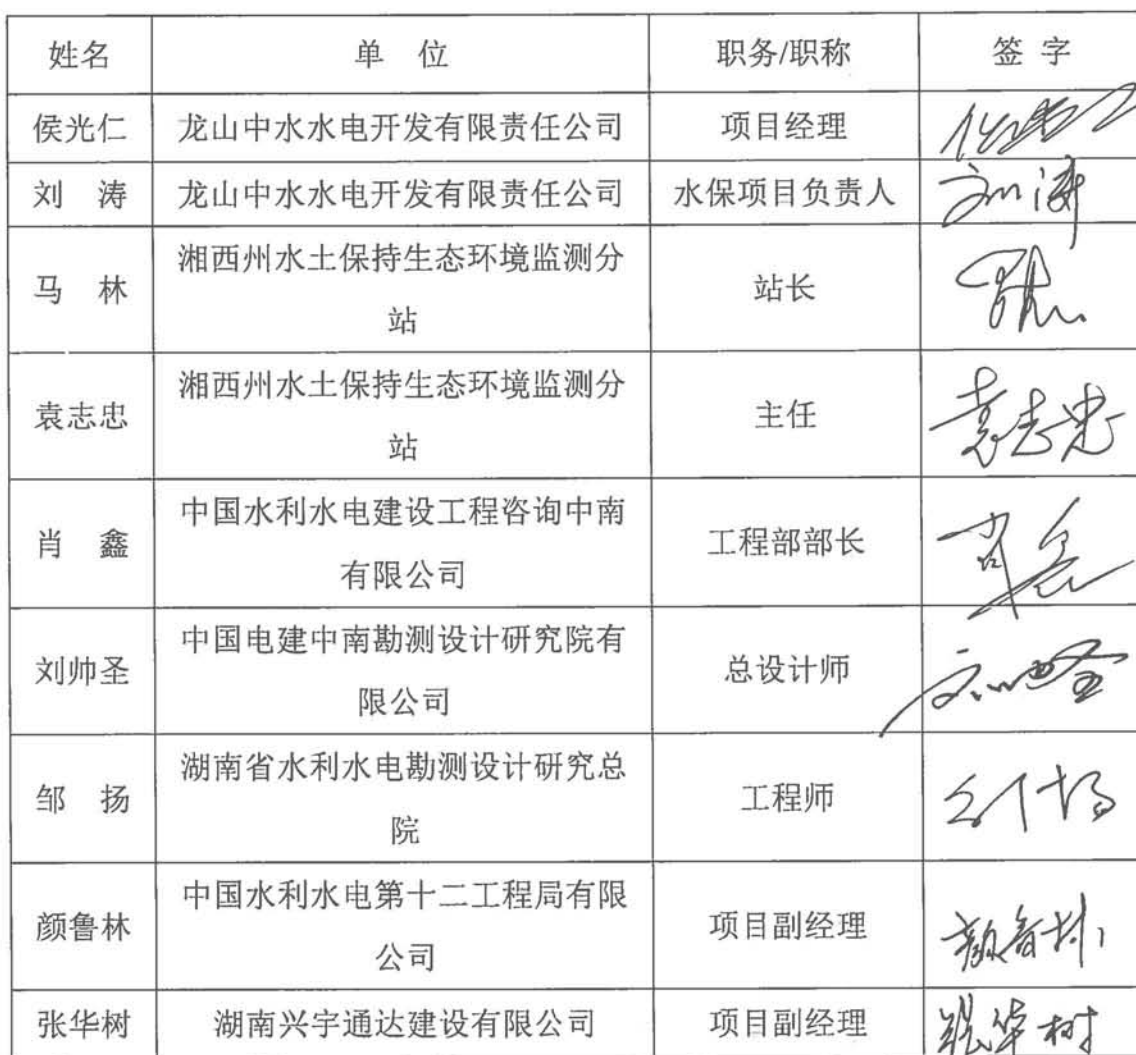 姓名 单 位 职务/职称 签 字
侯光仁 龙山中水水电开发有限责任公司 项目经理
刘 涛 龙山中水水电开发有限责任公司 水保项目负责人 刘涛
马 林 湘西州水土保持生态环境监测分
站 站长
袁志忠 湘西州水土保持生态环境监测分
站 主任 袁志忠
肖 鑫 中国水利水电建设工程咨询中南
有限公司 工程部部长 肖鑫
刘帅圣 中国电建中南勘测设计研究院有
限公司 总设计师 刘帅圣
邹 扬 湖南省水利水电勘测设计研究总
院 工程师 邹扬
颜鲁林 中国水利水电第十二工程局有限
公司 项目副经理 颜鲁林
张华树 湖南兴宇通达建设有限公司 项目副经理 张华树